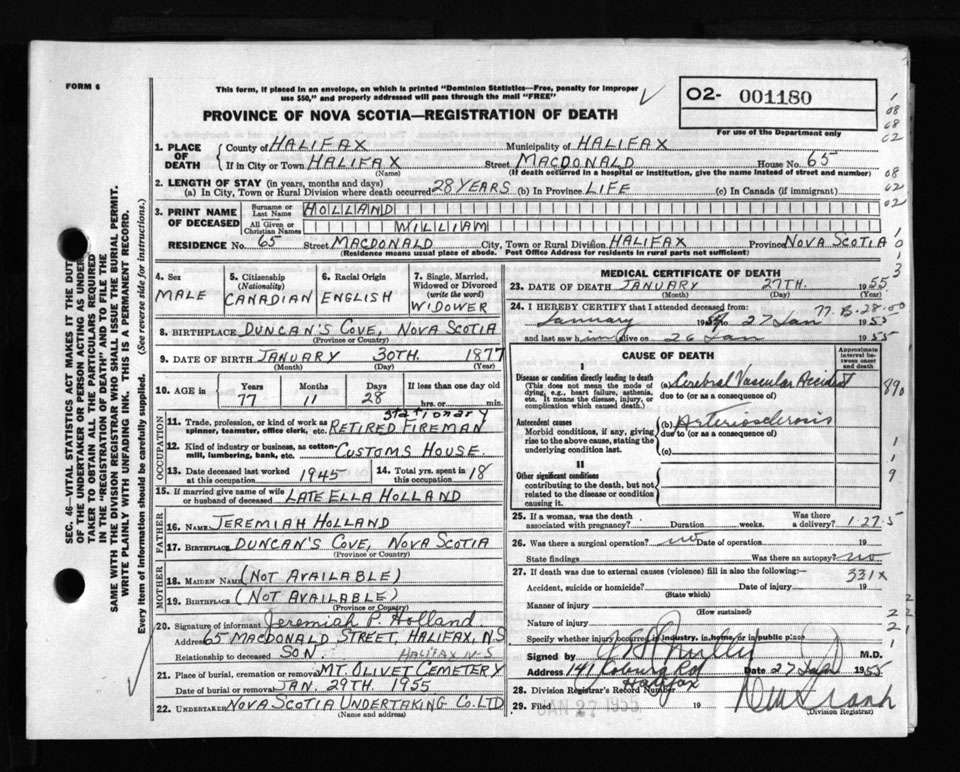 FORM 6
This form, if placed in an envelope, on which is printed "Dominion Statistics—Free, penalty for improper
use $50," and properly addressed will pass through the mail "FREE"
PROVINCE OF NOVA SCOTIA—REGISTRATION OF DEATH
O2- 001180
For use of the Department only
1. PLACE OF DEATH
County of HALIFAX Municipality of HALIFAX
If in City or Town HALIFAX Street MACDONALD House No. 65
(Name) (If death occurred in a hospital or institution, give the name instead of street and number)
2. LENGTH OF STAY (in years, months and days)
(a) In City, Town or Rural Division where death occurred 28 YEARS (b) In Province LIFE (c) In Canada (if immigrant)
3. PRINT NAME OF DECEASED
Surname or Last Name HOLLAND
All Given or Christian Names WILLIAM
RESIDENCE No. 65 Street MACDONALD City, Town or Rural Division HALIFAX Province NOVA SCOTIA
(Residence means usual place of abode. Post Office Address for residents in rural parts not sufficient)
4. Sex MALE
5. Citizenship (Nationality) CANADIAN
6. Racial Origin ENGLISH
7. Single, Married, Widowed or Divorced (write the word) WIDOWER
8. BIRTHPLACE DUNCAN'S COVE, NOVA SCOTIA
(Province or Country)
9. DATE OF BIRTH JANUARY 30TH. 1877
(Month) (Day) (Year)
10. AGE in Years 77 Months 11 Days 28 If less than one day old
hrs. or min.
OCCUPATION
11. Trade, profession, or kind of work as spinner, teamster, office clerk, etc. stationary RETIRED FIREMAN
12. Kind of industry or business, as cotton-mill, lumbering, bank, etc. CUSTOMS HOUSE.
13. Date deceased last worked at this occupation 1945
14. Total yrs. spent in this occupation 18
15. If married give name of wife or husband of deceased LATE ELLA HOLLAND
FATHER
16. NAME JEREMIAH HOLLAND
17. BIRTHPLACE DUNCAN'S COVE, NOVA SCOTIA
(Province or Country)
MOTHER
18. MAIDEN NAME (NOT AVAILABLE)
19. BIRTHPLACE (NOT AVAILABLE)
(Province or Country)
20. Signature of informant Jeremiah P. Holland
Address 65 MACDONALD STREET, HALIFAX, N.S
Relationship to deceased SON HALIFAX N-S
21. Place of burial, cremation or removal MT. OLIVET CEMETERY
Date of burial or removal JAN. 29TH. 1955
22. UNDERTAKER NOVA SCOTIA UNDERTAKING CO. LTD
(Name and address)
MEDICAL CERTIFICATE OF DEATH
23. DATE OF DEATH JANUARY 27TH. 1955
(Month) (Day) (Year)
24. I HEREBY CERTIFY that I attended deceased from:
January to 27 Jan 1955
and last saw him alive on 26 Jan 1955
CAUSE OF DEATH
Approximate interval between onset and death
I
Disease or condition directly leading to death (a) Cerebral Vascular Accident
(This does not mean the mode of dying, e.g., heart failure, asthenia, etc. It means the disease, injury, or complication which caused death.)
due to (or as a consequence of)
Antecedent causes (b) Arteriosclerosis
Morbid conditions, if any, giving rise to the above cause, stating the underlying condition last.
due to (or as a consequence of)
(c)
II
Other significant conditions
contributing to the death, but not related to the disease or condition causing it.
25. If a woman, was the death associated with pregnancy? Duration weeks. Was there a delivery? 1-27-5
26. Was there a surgical operation? no Date of operation 19
State findings Was there an autopsy? no
27. If death was due to external causes (violence) fill in also the following:— 331x
Accident, suicide or homicide? Date of injury 19
(State which)
Manner of injury
(How sustained)
Nature of injury
Specify whether injury occurred in industry, in home, or in public place
Signed by M.D.
Address 141 Coburg Rd Date 27 Jan 1955
Halifax
28. Division Registrar's Record Number
29. Filed JAN 27 1955 19
(Division Registrar)
SEC. 46—VITAL STATISTICS ACT MAKES IT THE DUTY
OF THE UNDERTAKER OR PERSON ACTING AS UNDER-
TAKER TO OBTAIN ALL THE PARTICULARS REQUIRED
IN THE "REGISTRATION OF DEATH" AND TO FILE THE
SAME WITH THE DIVISION REGISTRAR WHO SHALL ISSUE THE BURIAL PERMIT.
WRITE PLAINLY WITH UNFADING INK. THIS IS A PERMANENT RECORD.
Every item of information should be carefully supplied. (See reverse side for instructions.)